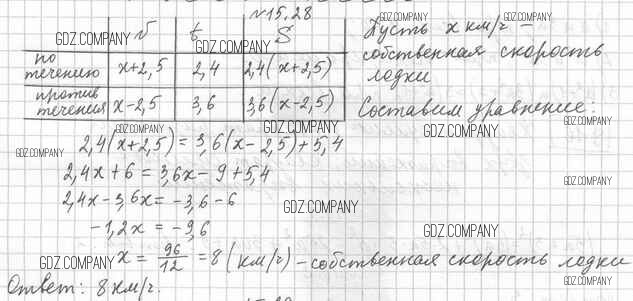 №15,28
v t S
по течению x+2,5 2,4 2,4(x+2,5)
против течения x-2,5 3,6 3,6(x-2,5)
Пусть x км/ч –
собственная скорость
лодки
Составим уравнение:
2,4(x+2,5)=3,6(x-2,5)+5,4
2,4x+6=3,6x-9+5,4
2,4x-3,6x=-3,6-6
-1,2x=-9,6
x=96/12=8(км/ч)-собственная скорость лодки
Ответ: 8км/ч.
GDZ.COMPANY
GDZ.COMPANY
GDZ.COMPANY
GDZ.COMPANY
GDZ.COMPANY
GDZ.COMPANY
GDZ.COMPANY
GDZ.COMPANY
GDZ.COMPANY
GDZ.COMPANY
GDZ.COMPANY
GDZ.COMPANY
GDZ.COMPANY
GDZ.COMPANY